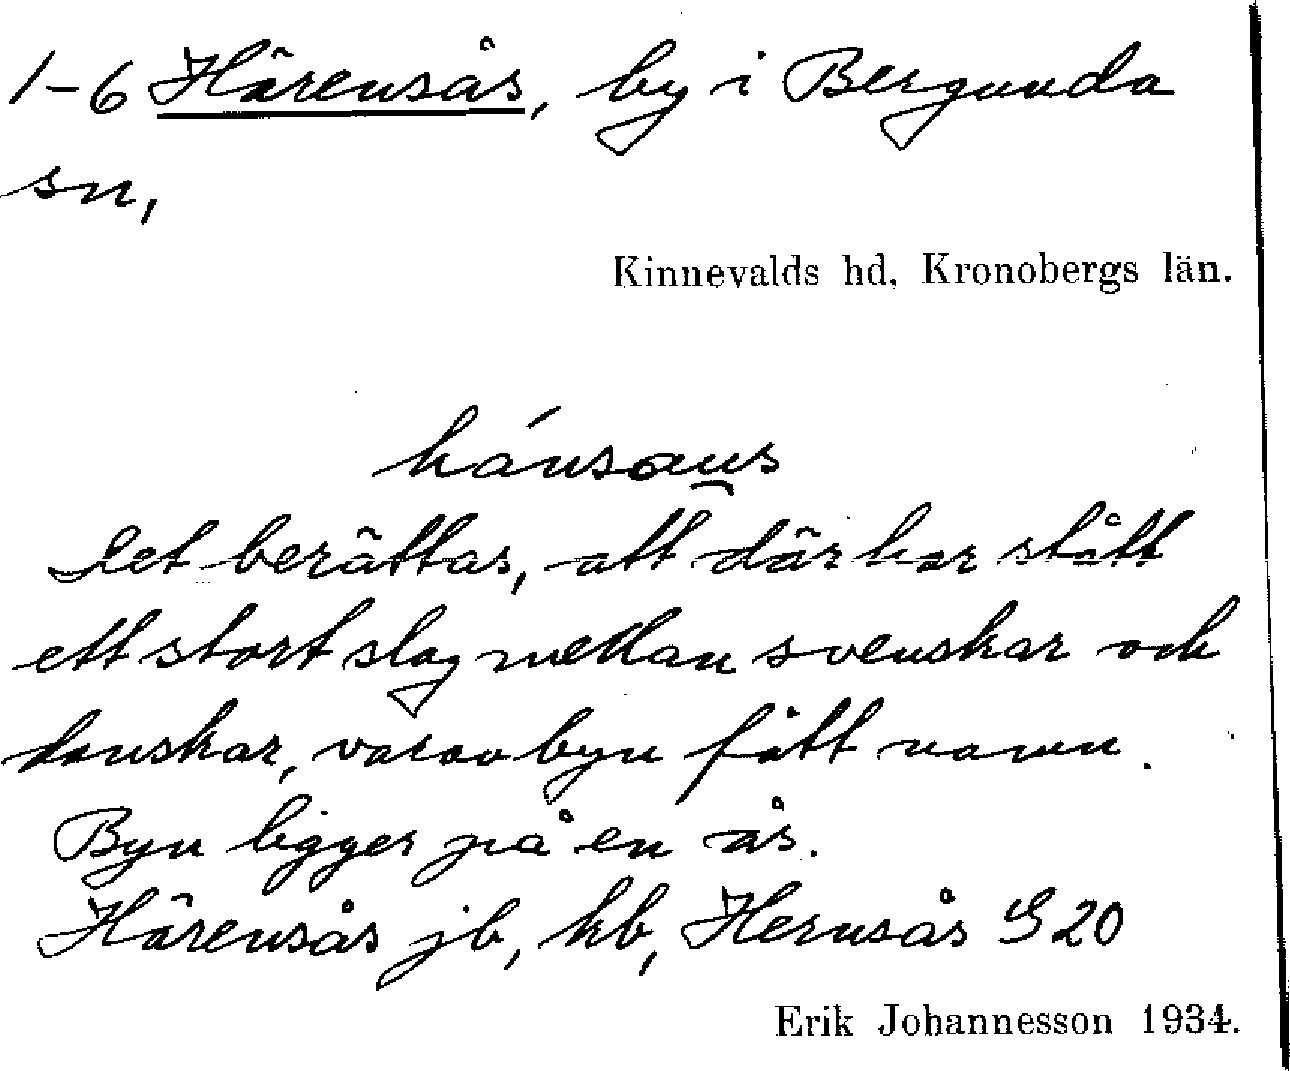 1-6 Härensås, by i Bergunda
sn,
Kinnevalds hd, Kronobergs län.
hánsaus
Det berättas, att där har stått
ett stort slag mellan svenskar och
danskar, varav byn fått namn.
Byn ligger på en ås.
Härensås jb, kb, Hernsås G20
Erik Johannesson 1934.